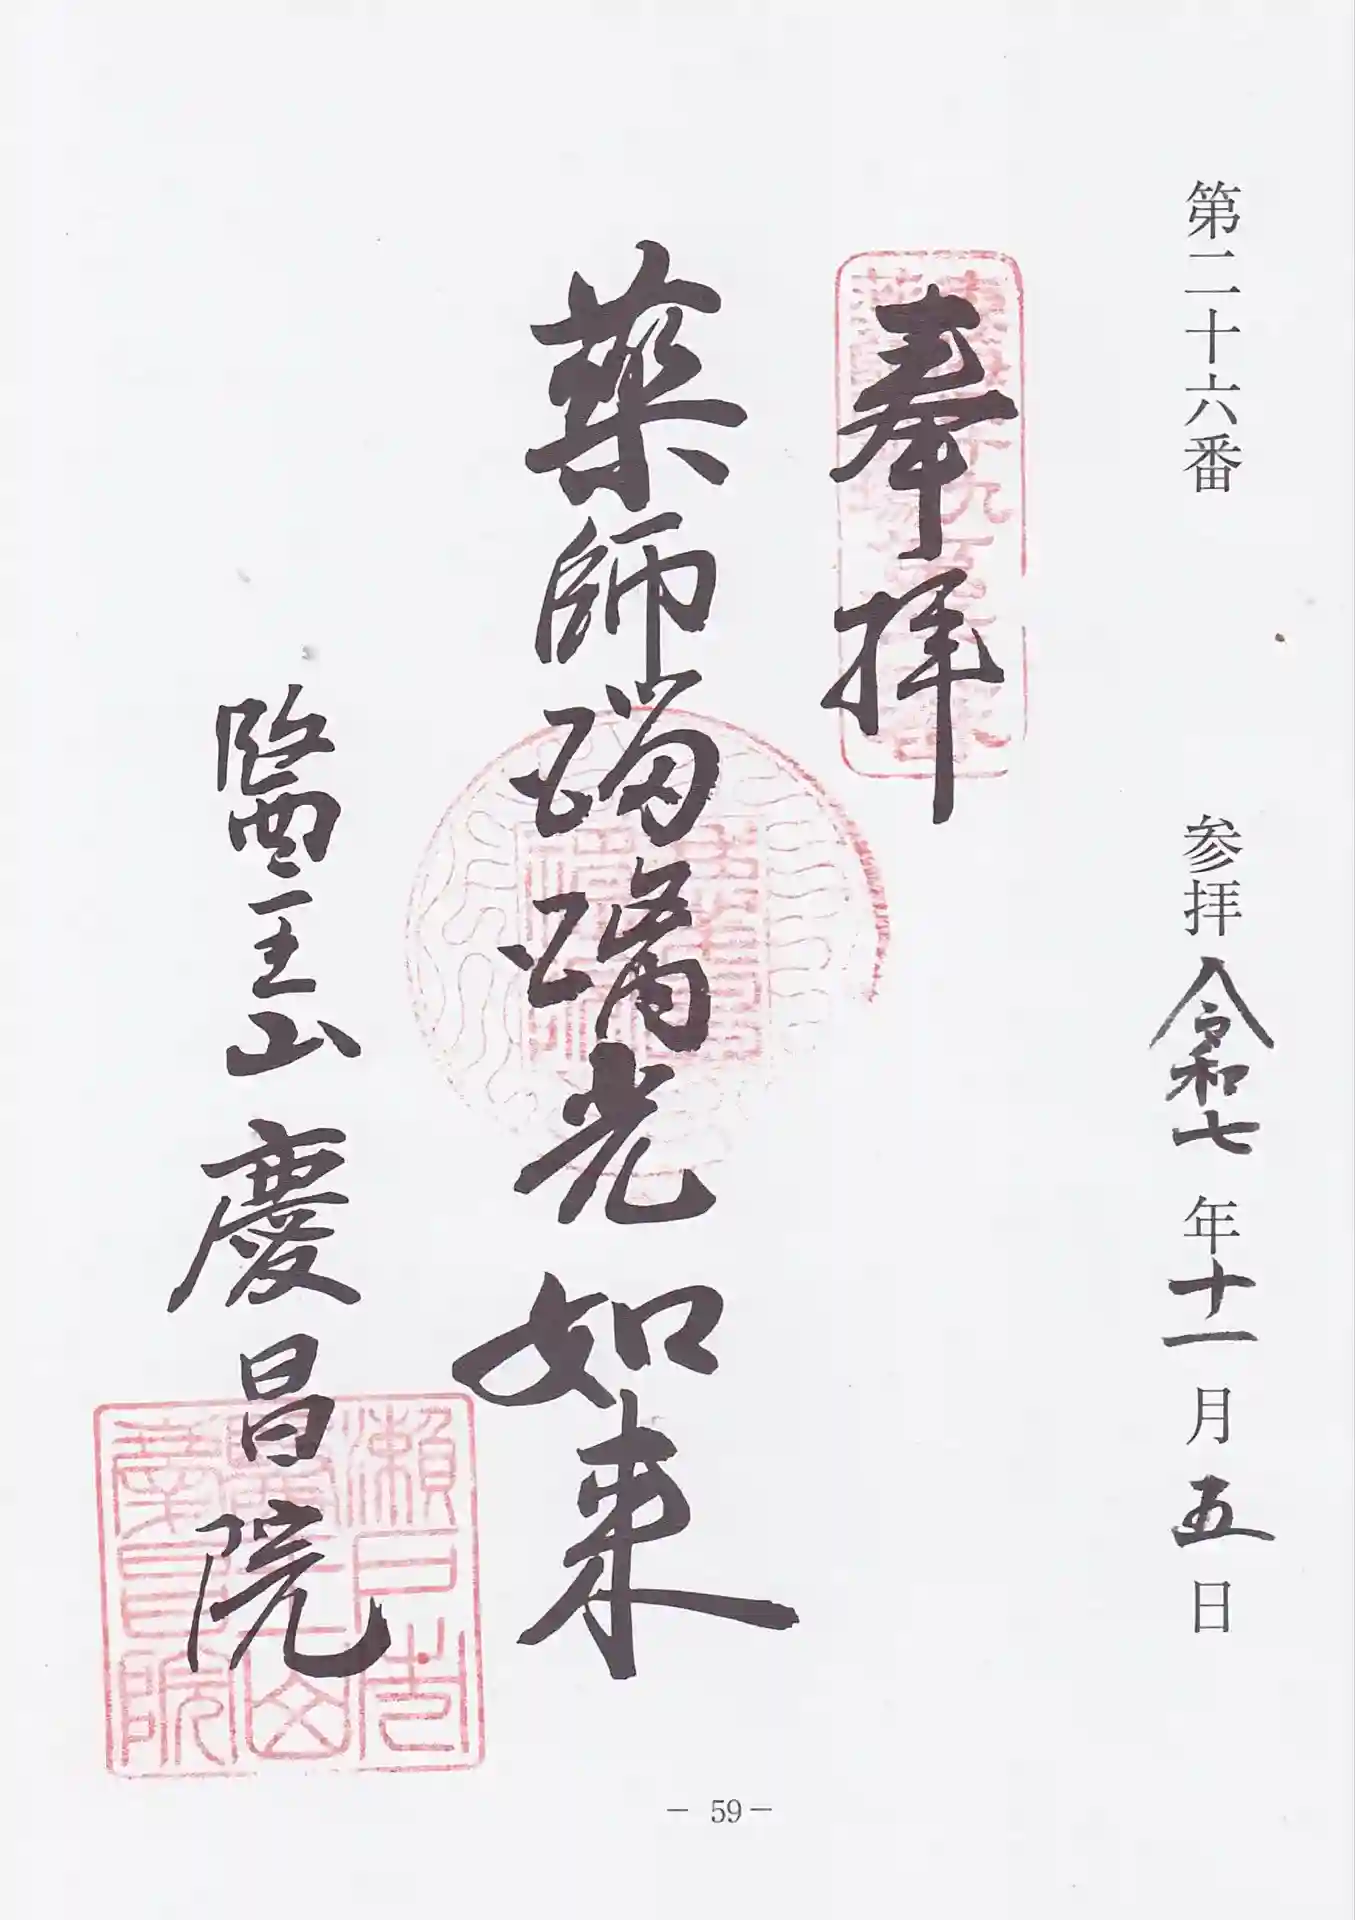 第二十六番　参拝 令和七年十一月五日
奉拝
薬師瑠璃光如来
醫王山 慶昌院
瀬戸市
醫王山
慶昌院
- 59 -